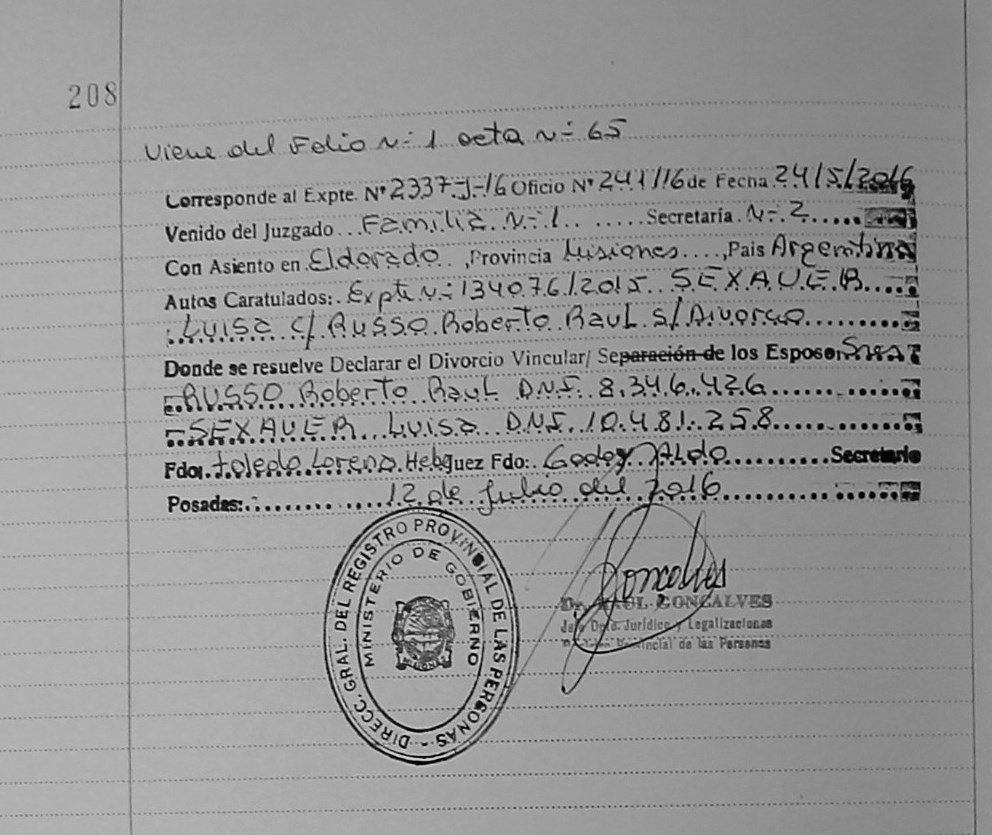 208
Viene del Folio Nº 1 acta Nº 65
Corresponde al Expte. Nº 2337-J-16 Oficio Nº 241/16 de Fecha 24/5/2016
Venido del Juzgado ... Familia Nº 1 ...... Secretaría . Nº 2 .....
Con Asiento en Eldorado ,Provincia Misiones ....,País Argentina
Autos Caratulados: Expte Nº 134076/2015 SEXAUER
LUISA c/ RUSSO Roberto Raul s/Divorcio
Donde se resuelve Declarar el Divorcio Vincular/ Separación de los Esposos
RUSSO Roberto Raul D.N.I. 8.346.426
SEXAUER Luisa D.N.I. 10.481.258
Fdo. Toledo Lorena Heb Juez Fdo: Godoy Aldo Secretario
Posadas: 12 de Julio del 2016
DIRECC. GRAL. DEL REGISTRO PROVINCIAL DE LAS PERSONAS -
MINISTERIO DE GOBIERNO
Goncalves
Dr. RAUL GONCALVES
Jefe Dpto. Jurídico y Legalizaciones
Provincial de las Personas